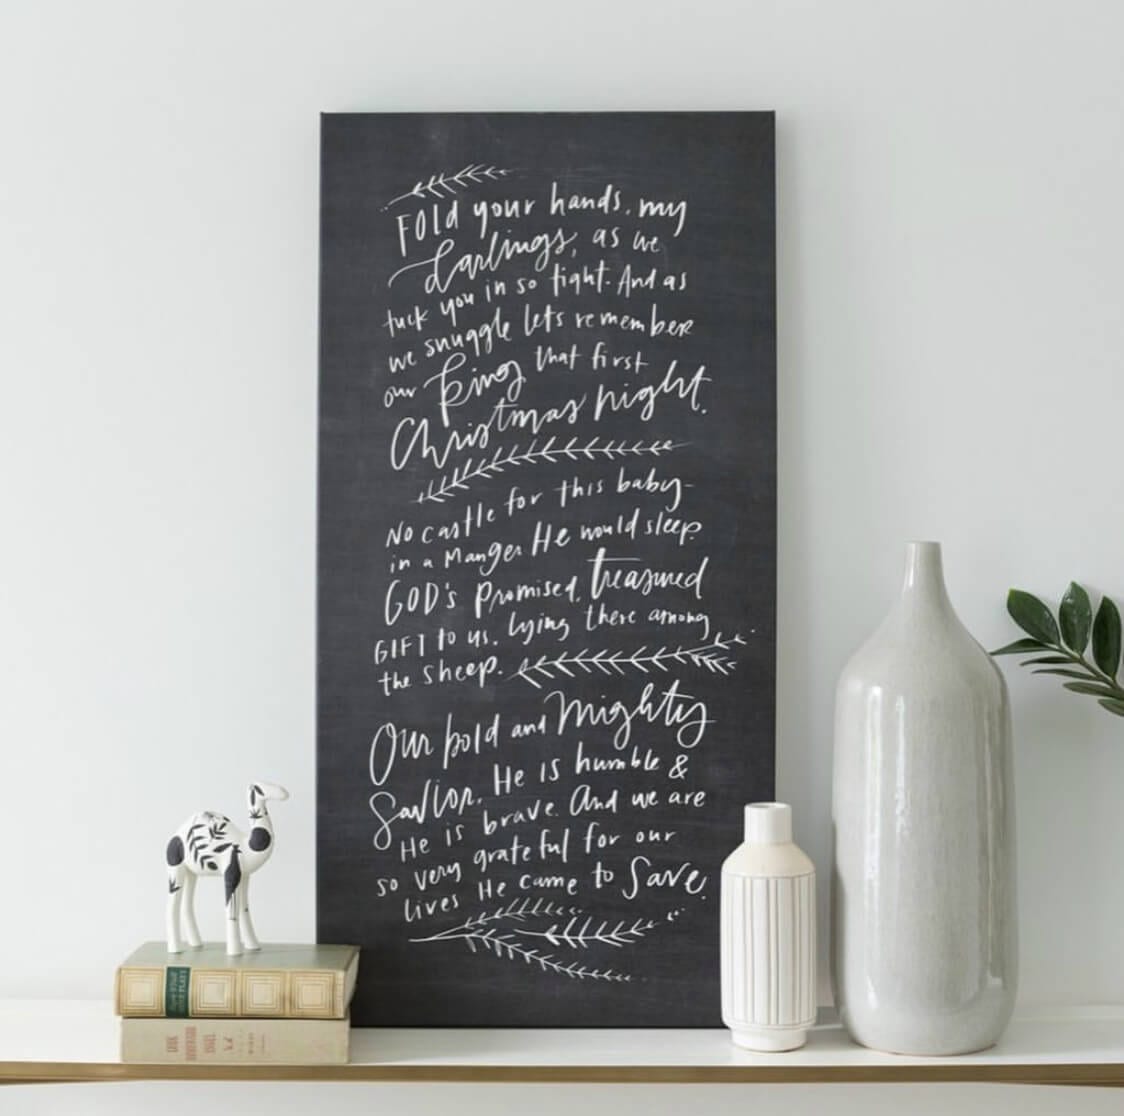 FOLD your hands, my
darlings, as we
tuck you in so tight. And as
we snuggle lets remember
our King that first
Christmas night.
NO castle for this baby-
in a Manger He would sleep.
GOD's Promised, treasured
GIFT to us, lying there among
the sheep.
Our bold and Mighty
Savior, He is humble &
He is brave. And we are
so very grateful for our
lives He came to Save.